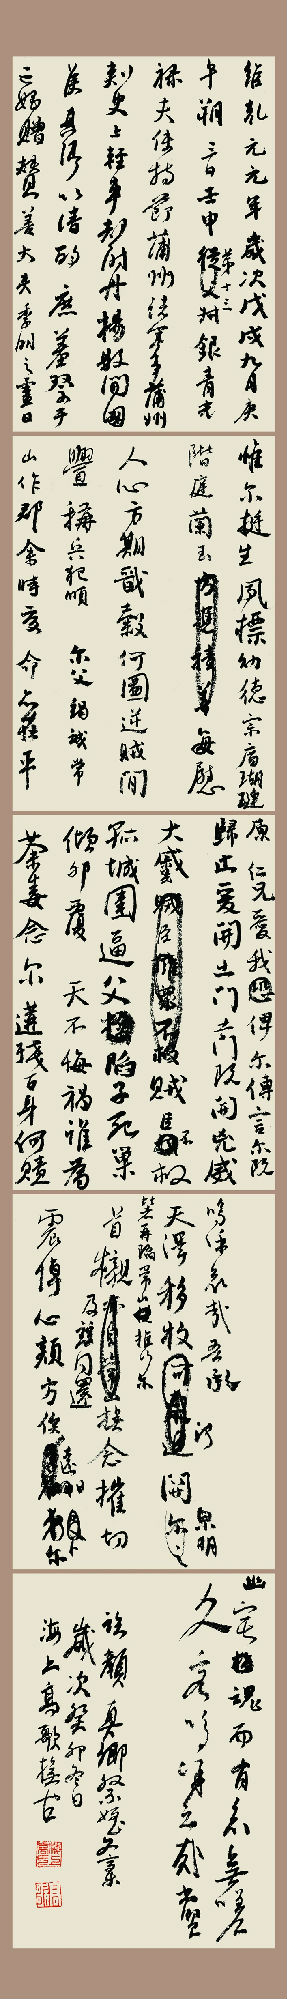 維乾元元年歲次戊戌九月庚
午朔三日壬申第十三從父叔銀青光
祿夫使持節蒲州諸軍事蒲州
刺史上輕車都尉丹楊縣開國
侯真卿以清酌庶羞祭于
亡姪贈贊善大夫季明之靈曰
惟爾挺生夙標幼德宗廟瑚璉
階庭蘭玉方憑積善每慰
人心方期戩穀何圖逆賊間
釁稱兵犯順爾父竭誠常
山作郡余時受命亦在平
原仁兄愛我恐俾爾傳言爾既
歸止爰開土門土門既開兇威
大蹙賊臣擁眾不救賊臣不救
孤城圍逼父陷子死巢
傾卵覆天不悔禍誰為
荼毒念爾遘殘百身何贖
嗚呼哀哉吾承
天澤移牧河關泉明
比者再陷常山攜爾
首櫬及茲同還撫念摧切
震悼心顏方俟遠日卜爾
幽宅魂而有知無嗟
久客嗚呼哀哉尚饗
臨顏真卿祭姪文稿
歲次癸卯冬日
海上高歌